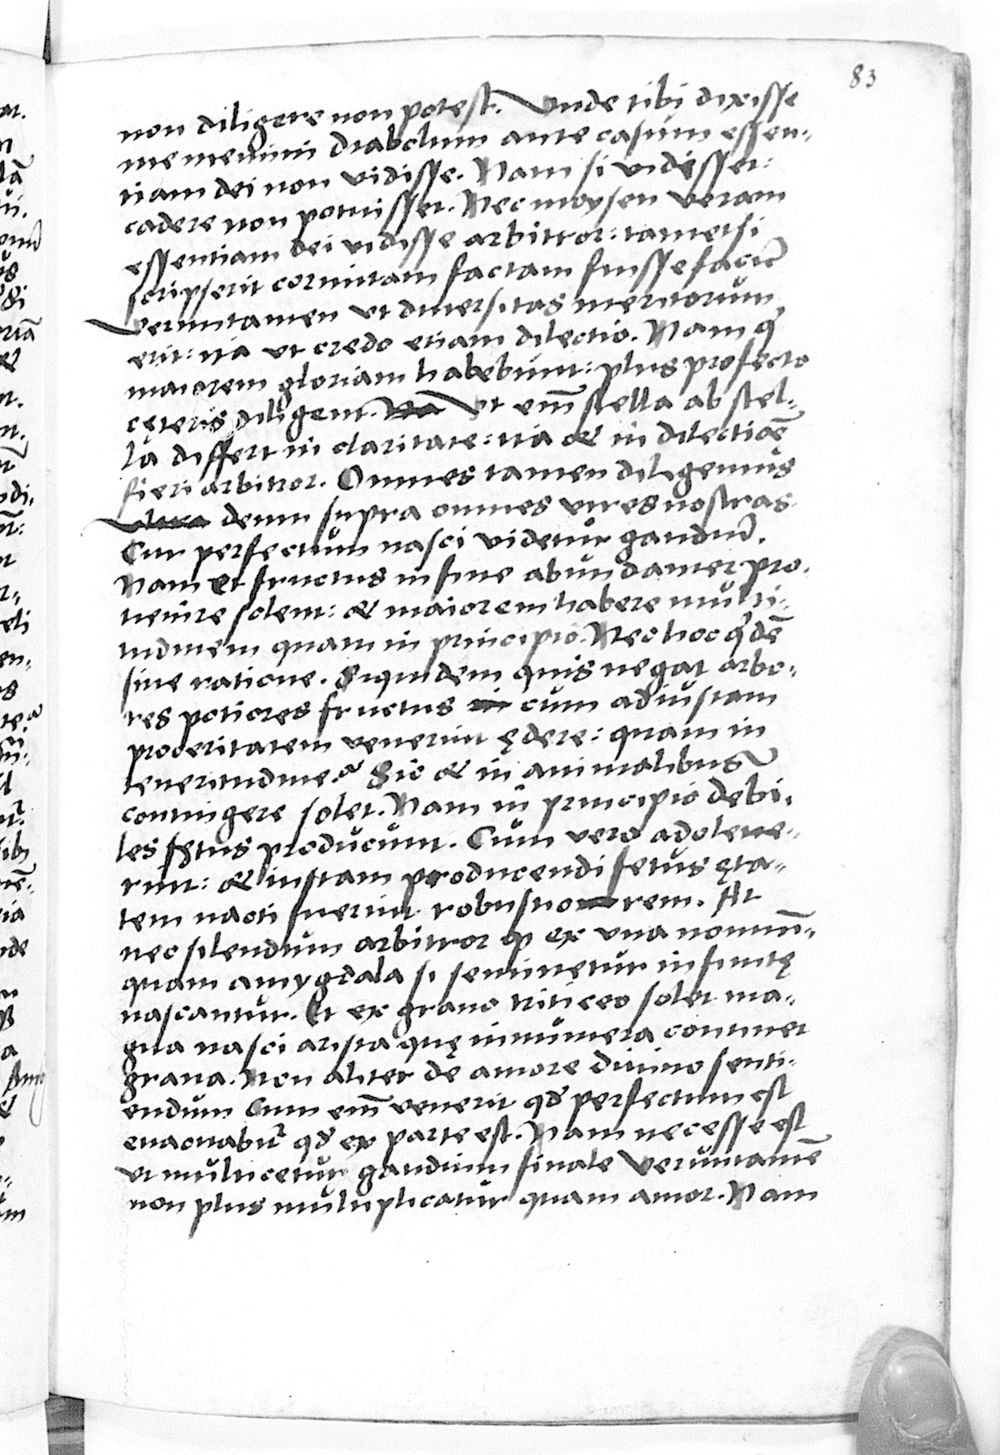 83
non diligere non potest. Vnde tibi dixisse
me memini diabolum ante casum essen-
tiam dei non vidisse. Nam si vidisset:
cadere non potuisset. Nec moysen veram
essentiam dei vidisse arbitror: tametsi
scripserit cornutam factam fuisse faciē
Veruntamen vt diuersitas meritorum
erit: ita vt credo etiam dilectio. Nam q̄
maiorem gloriam habebunt: plus profecto
cęteris diligent. Vt eni̅ stella ab stel-
la differt in claritate: ita & in dilectiōe
fieri arbitror. Omnes tamen diligemus
deum supra omnes vires nostras
Cur perfectum nasci videtur gaudiū.
Nam et fructus in fine abundanter pro-
uenire solent: & maiorem habere multi-
tudinem quam in principio. Nec hoc qͥdē
sine ratione. Siquidem quis negat arbo-
res potiores fructus cum ad iustam
proceritatem venerint ędere: quam in
teneritudine? Sic & in animalibus
contingere solet. Nam in principio debi-
les fętus producunt. Cum vero adoleue-
rint: & iustam producendi fetus ęta-
tem nacti fuerint robustiorem. At
nec silendum arbitror ꝙ ex vna nonnū-
quam amygdala si seminetur infinitę
nascantur. Et ex grano triticeo solet ma-
gna nasci arista quę innumera continet
grana. Non aliter de amore diuino senti-
endum Cum eni̅ venerit qd̄ perfectum est
euacuabit̄ qd̄ ex parte est. Nam necesse est
vt multicetur gaudium finale Veruntamē
non plus multiplicatur quam amor. Nam